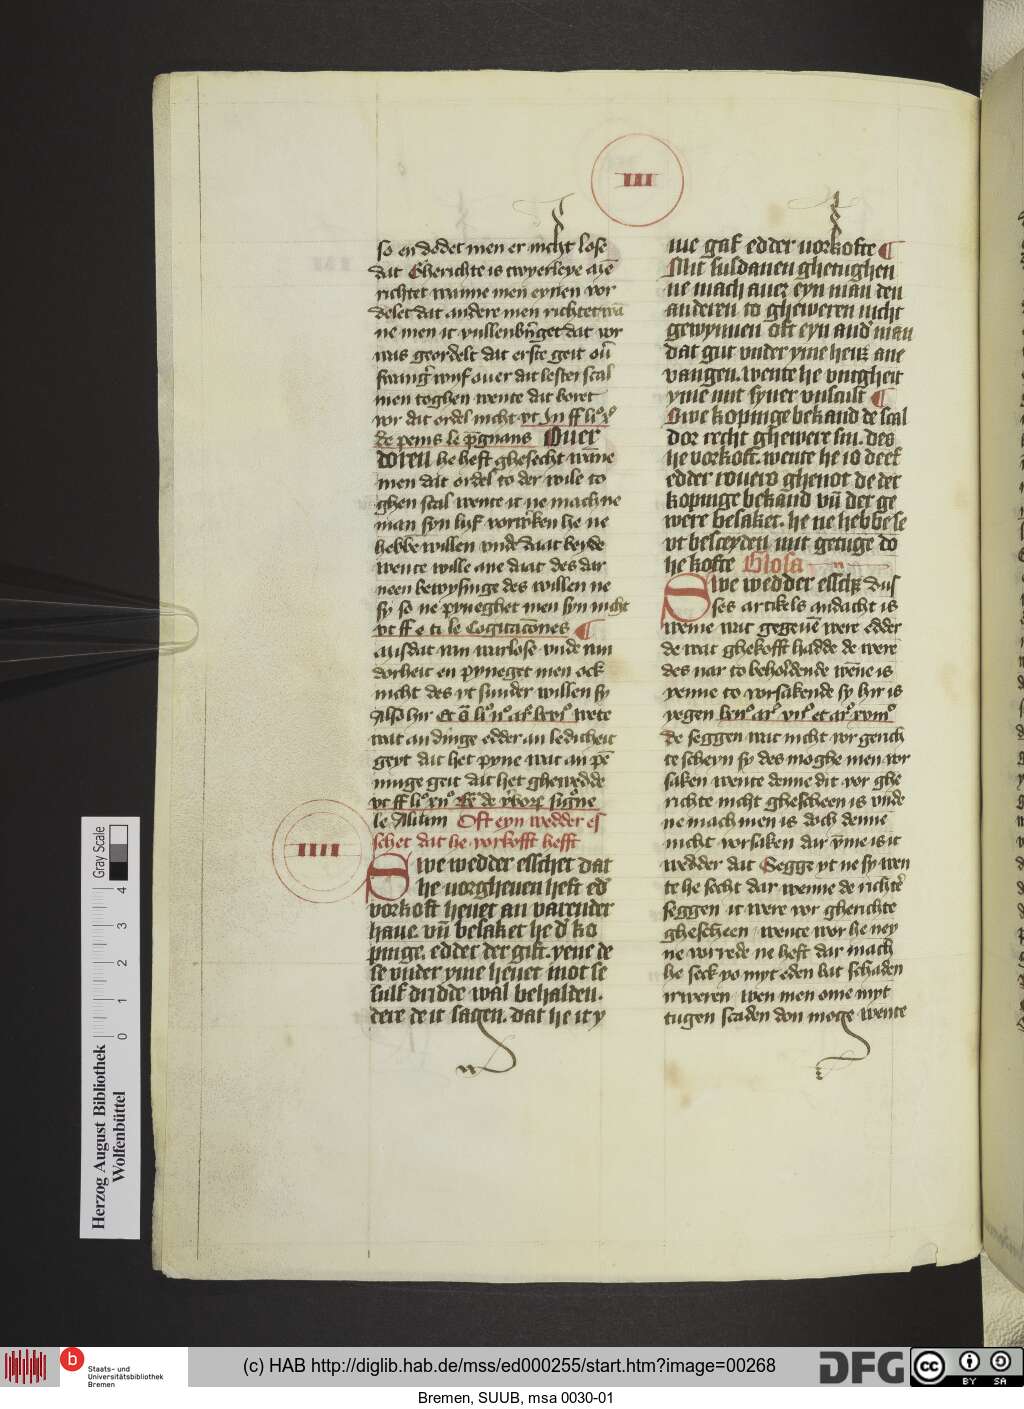 III
so en dedet men er nicht lose
dat Gherichte is twyerleye me͞
richtet wanne men eynen vor
delet dat andere men richtet wā
ne men it vullenbr̄get dat vor
was geordelt dat erste geit ou̅
swang̅ wyf ouer dat lester scal
men toghen wente dat boret
vor dat ordel nicht vt In ff li° x°
de penis le p̄gnans Ouer
doren he heft ghesecht wāne
men dat ordel to der wile to
ghen scal wente it ne mach ne
man syn lyf vorwrken he ne
hebbe willen vnde daat beyde
wente wille ane daat des dar
neen bewysinge des willen ne
sy so ne pyneghet men syn nicht
vt ff e ti le Cogitacōnes ¶
alfdat nin wurlose vnde nin
dorheit en pyneget men ock
nicht des vt sunder willen sy
Also hir et ā li° ii° ar° lxvi° wete
wat an dinge edder an ledicheit
geyt dat het pyne wat an pē
ninge geit dat het ghewedde
vt ff li° xii° Re̅ de v̓bor̄ signe
le Alium Oft eyn wedder es
schet dat he vorkofft hefft
IIII
Swe wedder esschet dat
he uorgheuen heft ed̓
vorkoft heuet an varender
haue. vn̄ besaket he d̓ ko
pinge. edder der gift. yene de
se vnder yme heuet mot se
sulf dridde wal behalden.
dere de it sagen. dat he it y
me gaf edder uorkofte ¶
Mit suldanen ghetughen
ne mach auer eyn man den
anderen to gheweren nicht
gewynnen oft eyn and̓ man
dat gut vnder yme heuet ane
vangen. wente he vntgheit
yme mit syner vnschult ¶
Swe kopinge bekand de scal
dor recht ghewere sin. des
he vorkoft. wente he is deef
edder rouers ghenot de der
kopinge bekand vn̄ der ge
were besaket. he ne hebbe se
vt besceyden mit getuge do
he kofte Glosa
Swe wedder esschet dus
ses artikels andacht is
weme wat gegeuē were edder
de wat ghekofft hadde de were
des nar to beholdende wēne is
yenne to vorsakende sy hir is
yegen ar° vii° et ar° xviii°
de seggen wat nicht vor gerich
te scheyn sy des moghe men vor
saken wente denne dit vor ghe
richte nicht ghescheen is vnde
ne mach men is doch denne
nicht vorsaken dar v̄me is it
wedder dat Segge yt ne sy wen
te he secht dar wenne de richte̓
seggen it were vor gherichte
ghescheen wente wor he ney
ne wrrede ne heft dar mach
he seck yo myt eden but schaden
irweren wen men ome myt
tugen scaden don moge wente
Gray Scale
4
3
2
1
0
Herzog August Bibliothek
Wolfenbüttel
b
Staats- und
Universitätsbibliothek
Bremen
(c) HAB http://diglib.hab.de/mss/ed000255/start.htm?image=00268
DFG
cc
BY SA
Bremen, SUUB, msa 0030-01